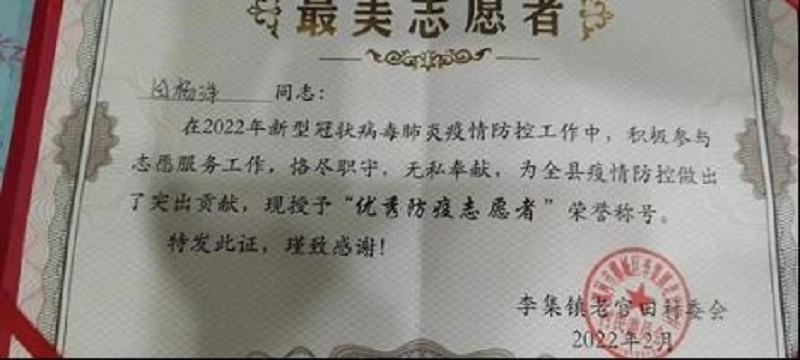 最美志愿者
杨 同志：
在2022年新型冠状病毒肺炎疫情防控工作中，积极参与
志愿服务工作，恪尽职守，无私奉献，为全县疫情防控做出
了突出贡献，现授予“优秀防疫志愿者”荣誉称号。
特发此证，瑾致感谢！
李集镇老官田村委会
2022年2月